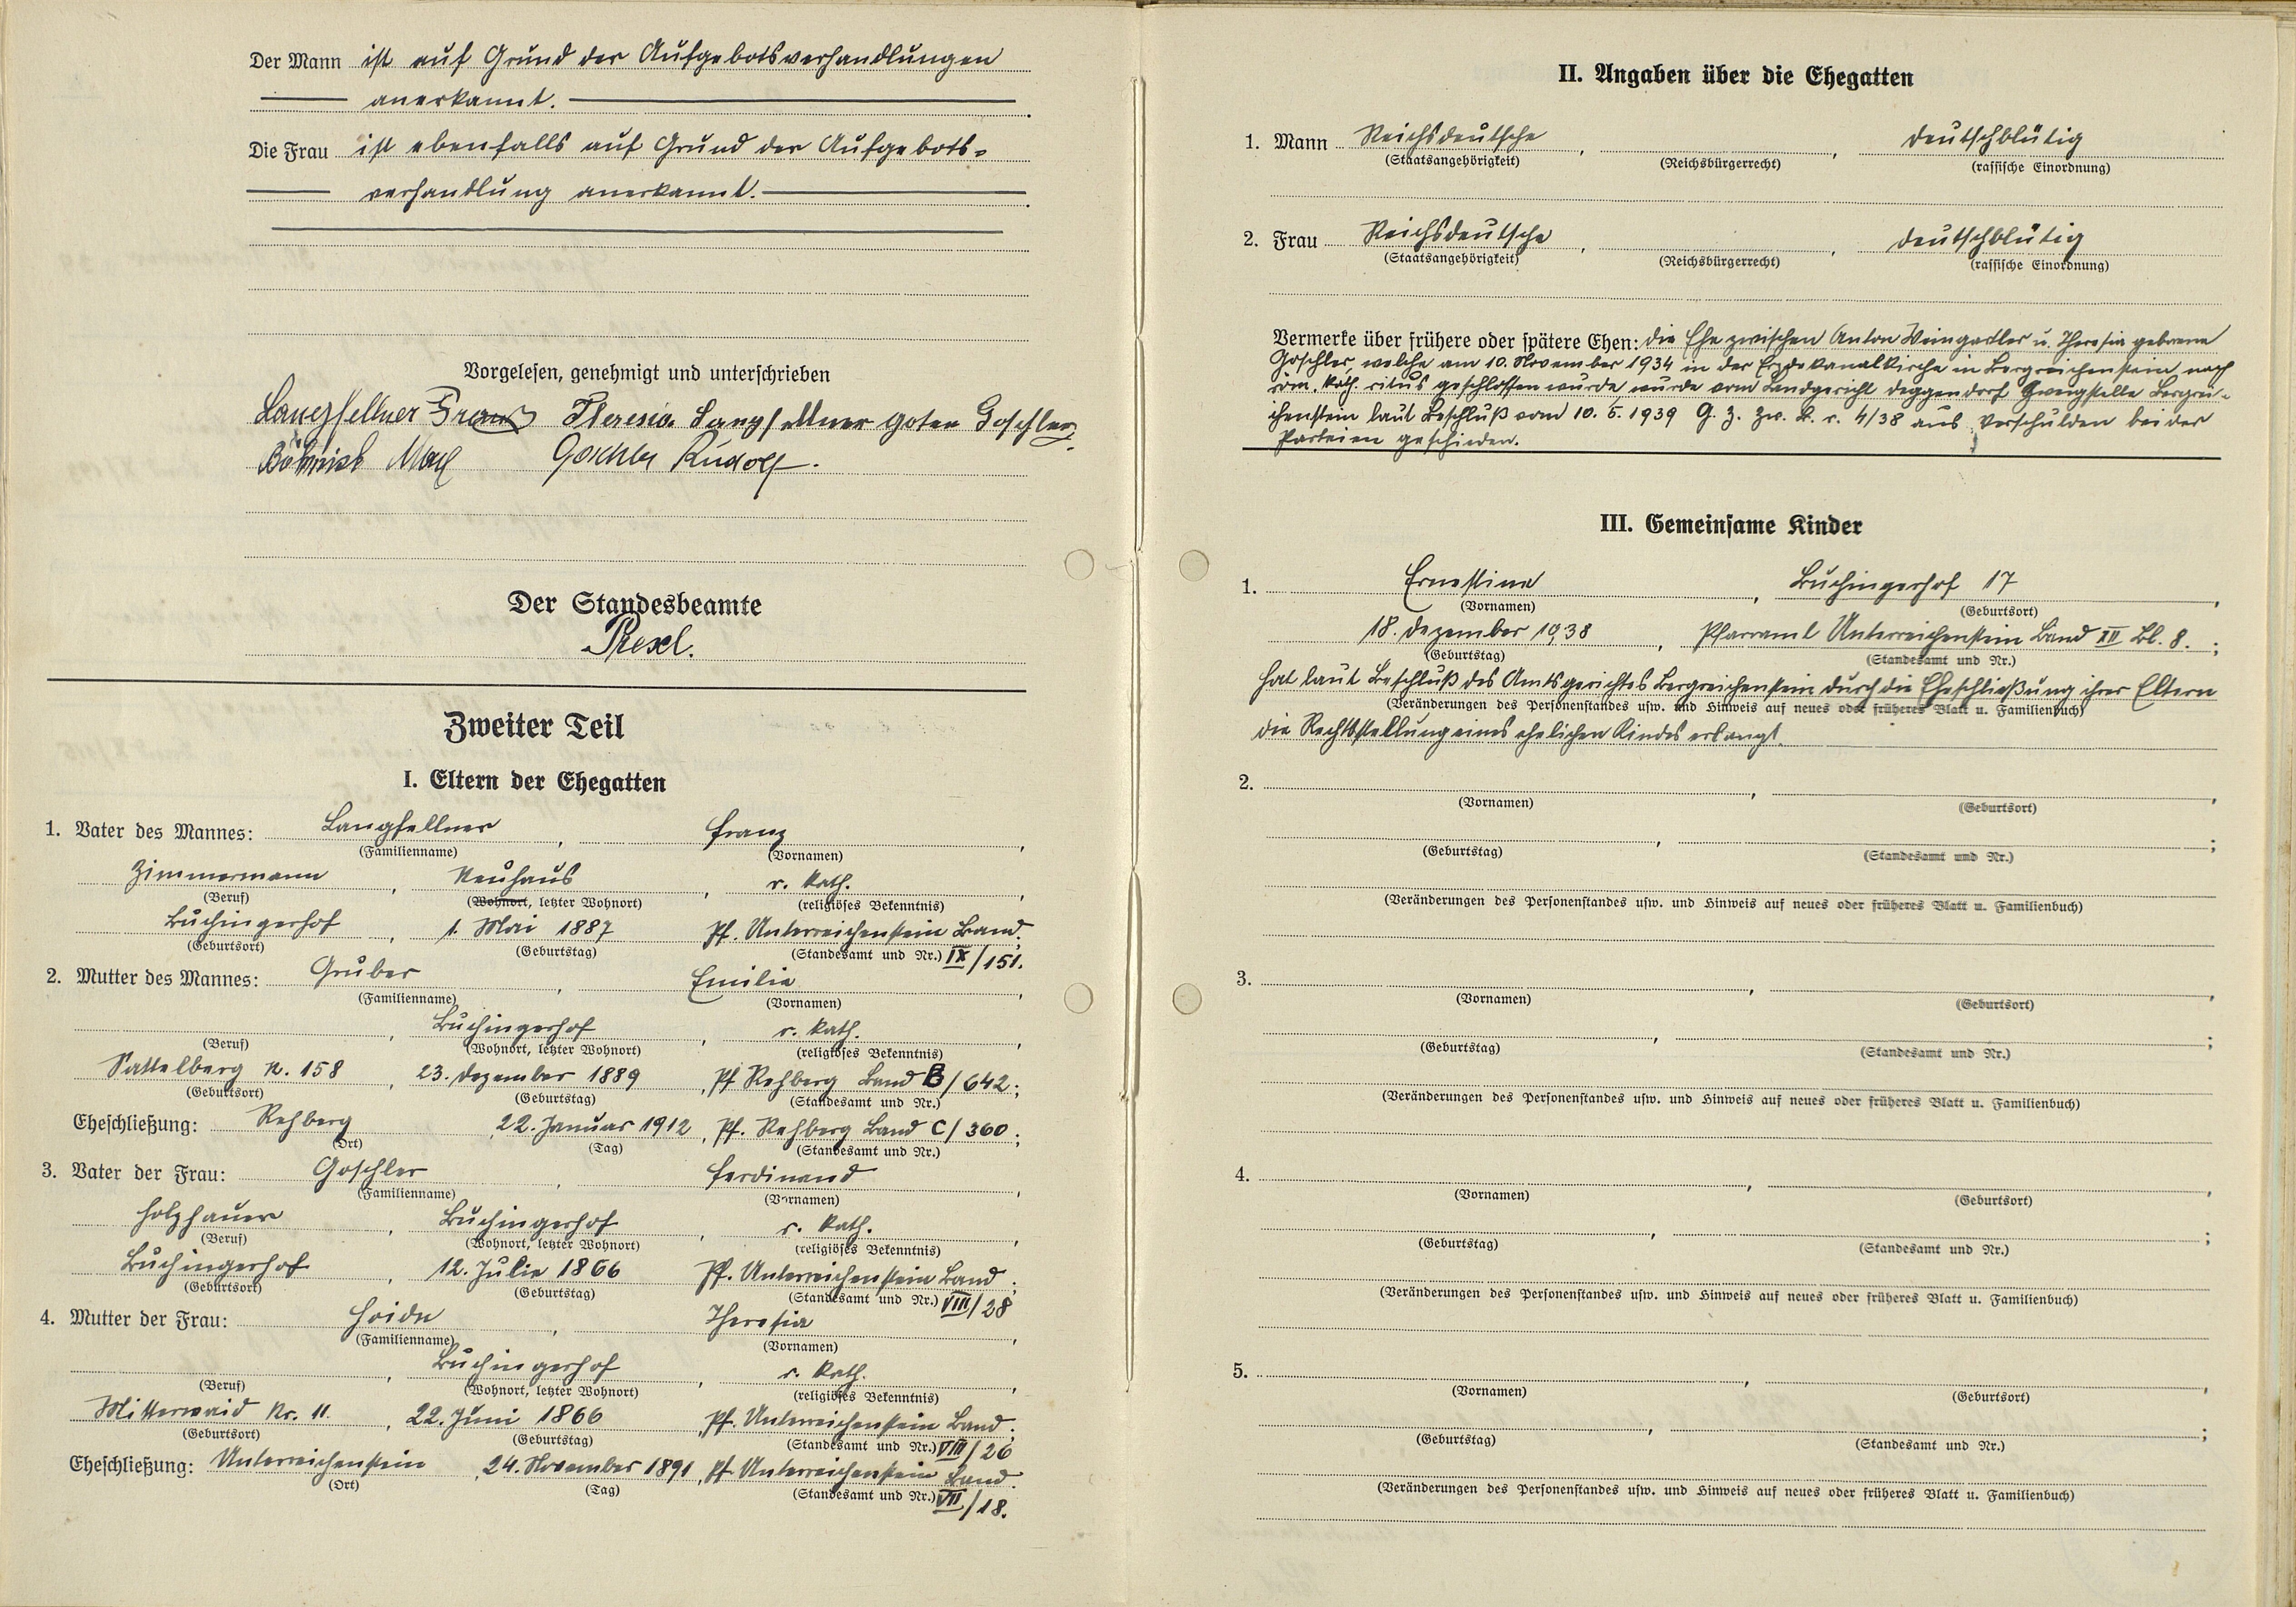 Der Mann ist auf Grund der Aufgebotsverhandlungen
anerkannt.
Die Frau ist ebenfalls auf Grund der Aufgebots-
verhandlung anerkannt.
Vorgelesen, genehmigt und unterschrieben
Langfellner Franz Theresia Langfellner goren Goschler
Max Goschler Rudolf.
Der Standesbeamte
Presl.
Zweiter Teil
I. Eltern der Ehegatten
1. Vater des Mannes: Langfellner, Franz,
(Familienname) (Vornamen)
Zimmermann, Neuhaus, r. kath.,
(Beruf) (Wohnort, letzter Wohnort) (religiöses Bekenntnis)
Buchingerhof, 1. Mai 1887 Pf. Unterreichenstein Band;
(Geburtsort) (Geburtstag) (Standesamt und Nr.) IX/151.
2. Mutter des Mannes: Gruber, Emilie,
(Familienname) (Vornamen)
, Buchingerhof, r. kath.,
(Beruf) (Wohnort, letzter Wohnort) (religiöses Bekenntnis)
Sattelberg N. 158, 23. Dezember 1889, Pf Rehberg Band B/642;
(Geburtsort) (Geburtstag) (Standesamt und Nr.)
Eheschließung: Rehberg, 22. Januar 1912, Pf. Rehberg Band C/360;
(Ort) (Tag) (Standesamt und Nr.)
3. Vater der Frau: Goschler, Ferdinand,
(Familienname) (Vornamen)
Holzhauer, Buchingerhof, r. kath.,
(Beruf) (Wohnort, letzter Wohnort) (religiöses Bekenntnis)
Buchingerhof, 12. Julie 1866 Pf. Unterreichenstein Band;
(Geburtsort) (Geburtstag) (Standesamt und Nr.) VIII/28
4. Mutter der Frau: Hoidn, Theresia,
(Familienname) (Vornamen)
, Buchingerhof, r. kath.,
(Beruf) (Wohnort, letzter Wohnort) (religiöses Bekenntnis)
Mitterwaid Nr. 11., 22. Juni 1866, Pf. Unterreichenstein Band;
(Geburtsort) (Geburtstag) (Standesamt und Nr.) VIII/26
Eheschließung: Unterreichenstein, 24. November 1891, Pf. Unterreichenstein Band.
(Ort) (Tag) (Standesamt und Nr.) VII/18.
II. Angaben über die Ehegatten
1. Mann Reichsdeutsche, , deutschblütig
(Staatsangehörigkeit) (Reichsbürgerrecht) (rassische Einordnung)
2. Frau Reichsdeutsche, , deutschblütig
(Staatsangehörigkeit) (Reichsbürgerrecht) (rassische Einordnung)
Vermerke über frühere oder spätere Ehen: Die Ehe zwischen Anton Weingartler u. Theresia geborene
Goschler, welche am 10. November 1934 in der Erzdekanalkirche in Bergreichenstein nach
röm. kath. ritus geschlossen wurde, wurde vom Landgericht Deggendorf Zweigstelle Bergrei-
chenstein laut Beschluß vom 10. 5. 1939 G. Z. Zw. k. r. 4/38 aus Verschulden beider
Parteien geschieden.
III. Gemeinsame Kinder
1. Ernestine, Buchingerhof 17,
(Vornamen) (Geburtsort)
18. Dezember 1938, Pfarraml Unterreichenstein Band XII Bl. 8.;
(Geburtstag) (Standesamt und Nr.)
hat laut Beschluß des Amtsgerichtes Bergreichenstein durch die Eheschließung ihrer Eltern
(Veränderungen des Personenstandes usw. und Hinweis auf neues oder früheres Blatt u. Familienbuch)
die Rechtsstellung eines ehelichen Kindes erlangt.
2. , ,
(Vornamen) (Geburtsort)
, ;
(Geburtstag) (Standesamt und Nr.)
(Veränderungen des Personenstandes usw. und Hinweis auf neues oder früheres Blatt u. Familienbuch)
3. , ,
(Vornamen) (Geburtsort)
, ;
(Geburtstag) (Standesamt und Nr.)
(Veränderungen des Personenstandes usw. und Hinweis auf neues oder früheres Blatt u. Familienbuch)
4. , ,
(Vornamen) (Geburtsort)
, ;
(Geburtstag) (Standesamt und Nr.)
(Veränderungen des Personenstandes usw. und Hinweis auf neues oder früheres Blatt u. Familienbuch)
5. , ,
(Vornamen) (Geburtsort)
, ;
(Geburtstag) (Standesamt und Nr.)
(Veränderungen des Personenstandes usw. und Hinweis auf neues oder früheres Blatt u. Familienbuch)